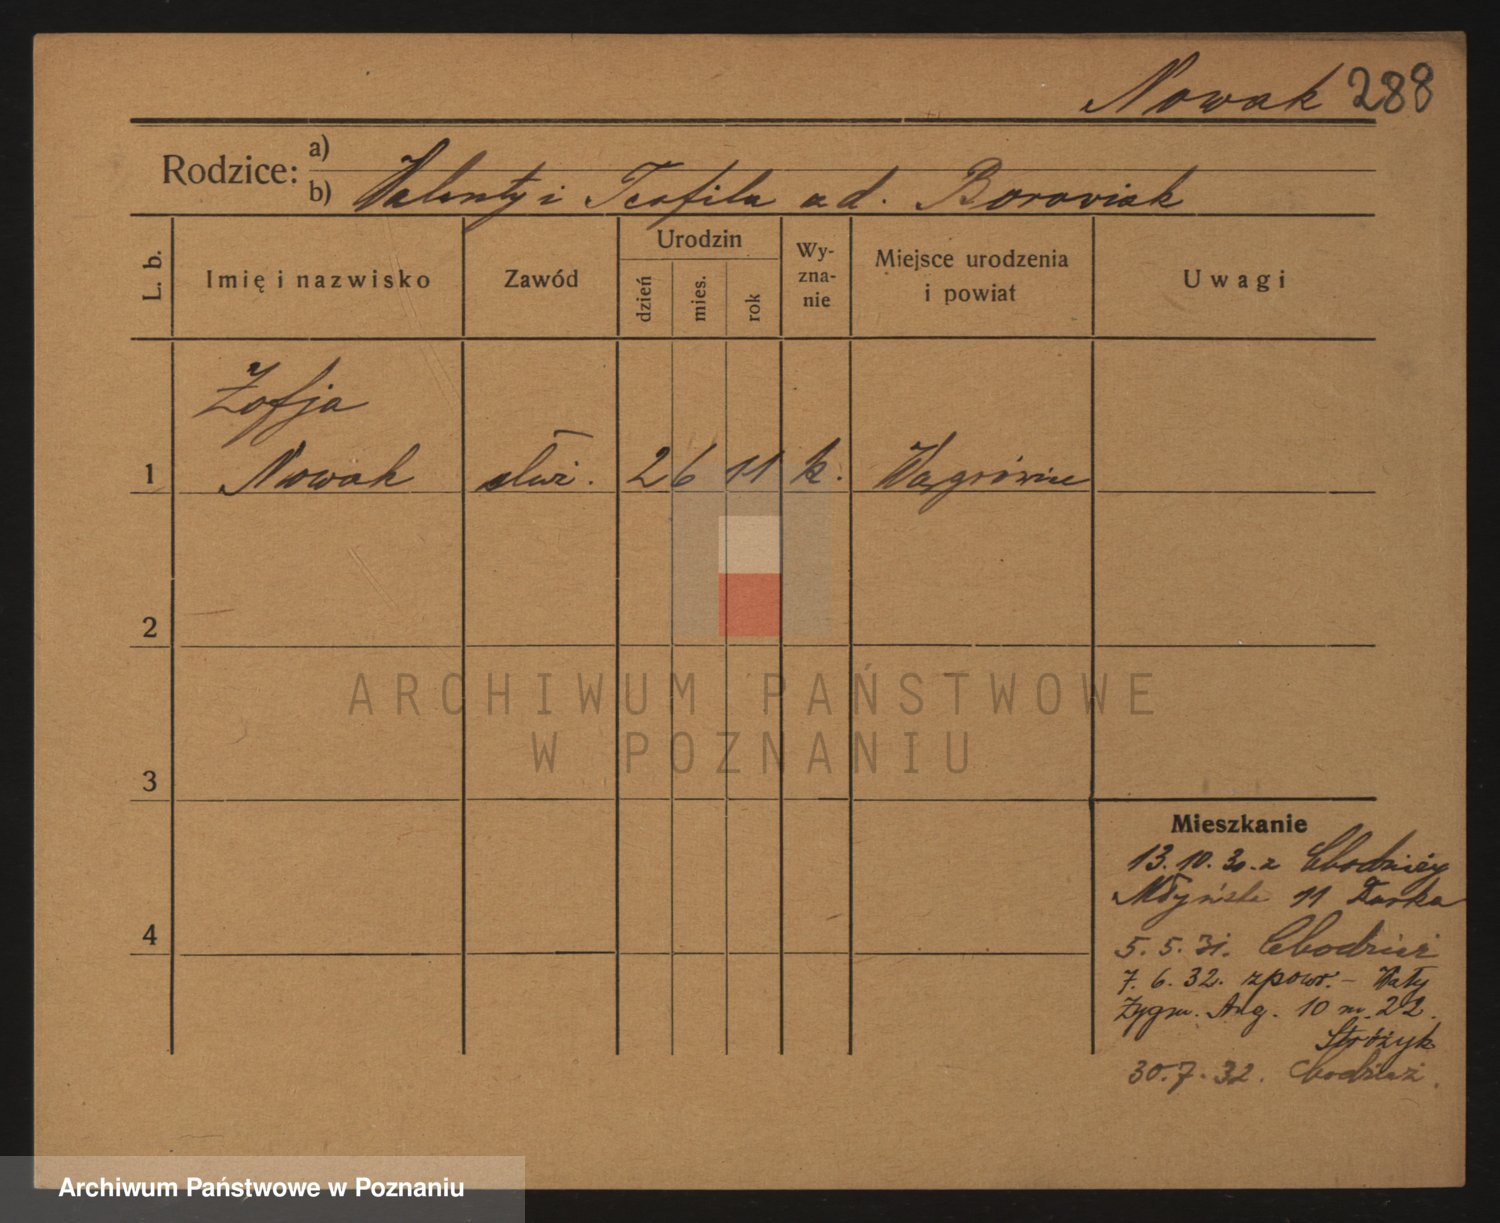 Nowak 288
Rodzice: a)
b) Walenty i Teofila z d. Borowiak
L. b.
Imię i nazwisko
Zawód
Urodzin
dzień
mies.
rok
Wy-
zna-
nie
Miejsce urodzenia
i powiat
Uwagi
Zofja
1 Nowak służ. 2 6 11 k. Wągrówiec
2
3
4
Mieszkanie
13. 10. 30. z Chodzieży
Młyńska 11
5. 5. 31. Chodzież
7. 6. 32. zpowr. – Wały
Zygm. Aug. 10 m. 22.
Stróżyk
30. 7. 32. Chodzież.
ARCHIWUM PAŃSTWOWE
W POZNANIU
Archiwum Państwowe w Poznaniu